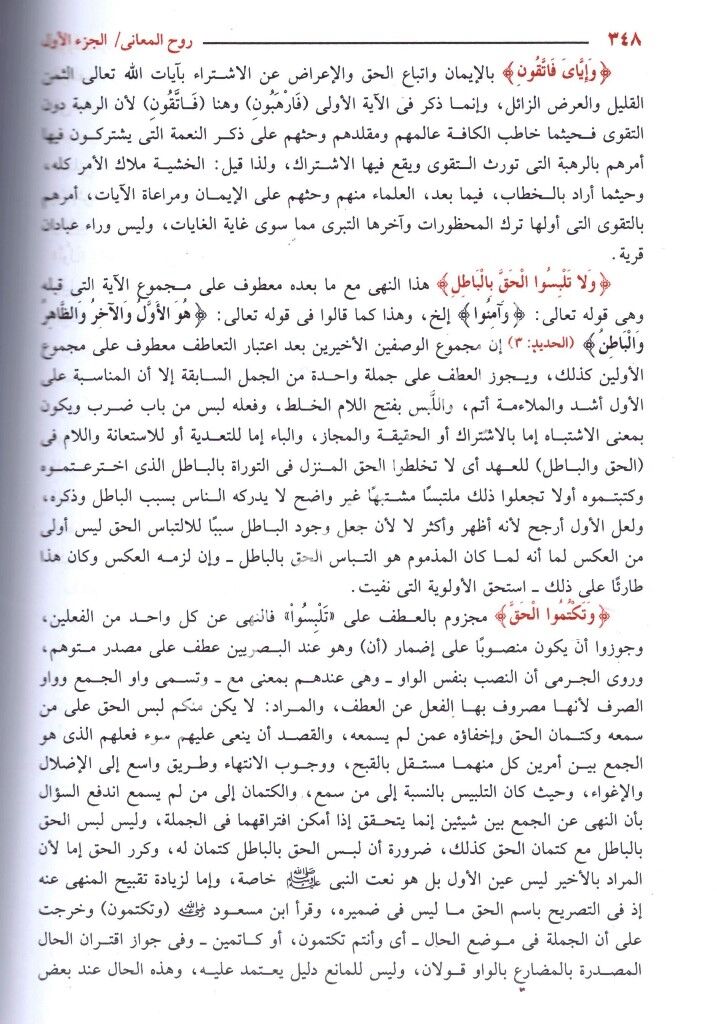 ٣٤٨ روح المعانى/ الجزء الأول
﴿وَإِيَّاىَ فَاتَّقُونِ﴾ بالإيمان واتباع الحق والإعراض عن الاشتراء بآيات الله تعالى الثمن
القليل والعرض الزائل، وإنما ذكر فى الآية الأولى (فَارْهَبُونِ) وهنا (فَاتَّقُونِ) لأن الرهبة دون
التقوى فحيثما خاطب الكافة عالمهم ومقلدهم وحثهم على ذكر النعمة التى يشتركون فيها
أمرهم بالرهبة التى تورث التقوى ويقع فيها الاشتراك، ولذا قيل: الخشية ملاك الأمر كله،
وحيثما أراد بالخطاب، فيما بعد، العلماء منهم وحثهم على الإيمان ومراعاة الآيات، أمرهم
بالتقوى التى أولها ترك المحظورات وآخرها التبرى مما سوى غاية الغايات، وليس وراء عبادان
قرية.
﴿وَلا تَلْبِسُوا الْحَقَّ بِالْبَاطِلِ﴾ هذا النهى مع ما بعده معطوف على مجموع الآية التى قبله
وهى قوله تعالى: ﴿وَآمِنُوا﴾ إلخ، وهذا كما قالوا فى قوله تعالى: ﴿هُوَ الأَوَّلُ وَالآخِرُ وَالظَّاهِرُ
وَالْبَاطِنُ﴾ (الحديد: ٣) إن مجموع الوصفين الأخيرين بعد اعتبار التعاطف معطوف على مجموع
الأولين كذلك، ويجوز العطف على جملة واحدة من الجمل السابقة إلا أن المناسبة على
الأول أشد والملاءمة أتم، واللَّبس بفتح اللام الخلط، وفعله لبس من باب ضرب ويكون
بمعنى الاشتباه إما بالاشتراك أو الحقيقة والمجاز، والباء إما للتعدية أو للاستعانة واللام فى
(الحق والباطل) للعهد أى لا تخلطوا الحق المنزل فى التوراة بالباطل الذى اخترعتموه
وكتبتموه أولا تجعلوا ذلك ملتبسًا مشتبهًا غير واضح لا يدركه الناس بسبب الباطل وذكره،
ولعل الأول أرجح لأنه أظهر وأكثر لا لأن جعل وجود الباطل سببًا للالتباس الحق ليس أولى
من العكس لما أنه لما كان المذموم هو التباس الحق بالباطل ـ وإن لزمه العكس وكان هذا
طارئًا على ذلك ـ استحق الأولوية التى نفيت.
﴿وَتَكْتُمُوا الْحَقَّ﴾ مجزوم بالعطف على «تَلْبِسُوا» فالنهى عن كل واحد من الفعلين،
وجوزوا أن يكون منصوبًا على إضمار (أن) وهو عند البصريين عطف على مصدر متوهم،
وروى الجرمى أن النصب بنفس الواو ـ وهى عندهم بمعنى مع ـ وتسمى واو الجمع وواو
الصرف لأنها مصروف بها الفعل عن العطف، والمراد: لا يكن منكم لبس الحق على من
سمعه وكتمان الحق وإخفاؤه عمن لم يسمعه، والقصد أن ينعى عليهم سوء فعلهم الذى هو
الجمع بين أمرين كل منهما مستقل بالقبح، ووجوب الانتهاء وطريق واسع إلى الإضلال
والإغواء، وحيث كان التلبيس بالنسبة إلى من سمع، والكتمان إلى من لم يسمع اندفع السؤال
بأن النهى عن الجمع بين شيئين إنما يتحقق إذا أمكن افتراقهما فى الجملة، وليس لبس الحق
بالباطل مع كتمان الحق كذلك، ضرورة أن لبس الحق بالباطل كتمان له، وكرر الحق إما لأن
المراد بالأخير ليس عين الأول بل هو نعت النبى ﷺ خاصة، وإما لزيادة تقبيح المنهى عنه
إذ فى التصريح باسم الحق ما ليس فى ضميره، وقرأ ابن مسعود رضي الله عنه (وتكتمون) وخرجت
على أن الجملة فى موضع الحال ـ أى وأنتم تكتمون، أو كاتمين ـ وفى جواز اقتران الحال
المصدرة بالمضارع بالواو قولان، وليس للمانع دليل يعتمد عليه، وهذه الحال عند بعض